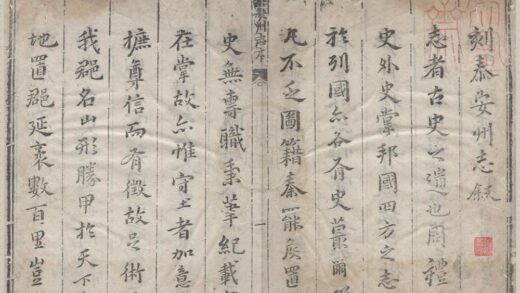 刻泰安州志敘
志者古史之遺也周禮
史外史掌邦國四方之志
於列國亦各有史蕞爾
凡不乏圖籍秦罷侯置
史無專職秉筆紀載
州志序
一
在掌故亦惟守土者加意
摭尊信而有徵故足術
我郡名山形勝甲於天下
地置郡延袤數百里豈